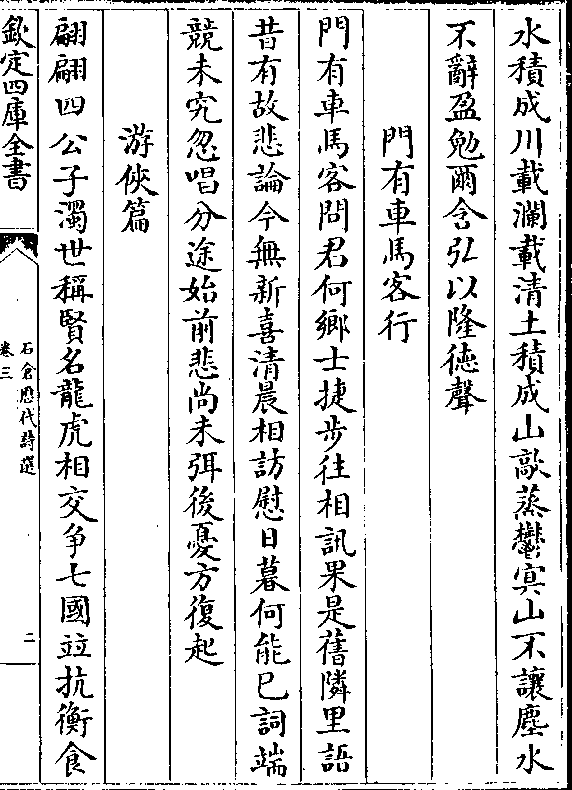 水積成川載瀾載清土積成山歊蒸鬱㝠山不讓塵水
不辭盈勉爾含弘以隆徳聲
門有車馬客行
門有車馬客問君何鄉士捷歩往相訊果是舊隣里語
昔有故悲論今無新喜清晨相訪慰日暮何能已詞端
競未究忽唱分途始前悲尚未弭後憂方復起
游俠篇
翩翩四公子濁世稱賢名龍虎相交争七國竝抗衡食
欽定四庫全書
石倉歴代詩選
卷三
二